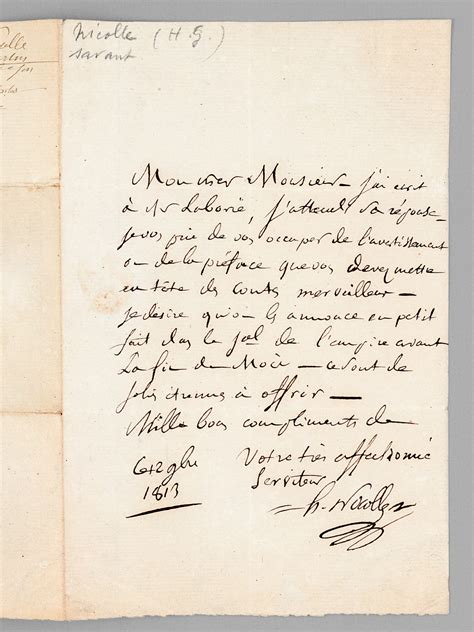 Nicolle (H. G.)
savant
Mon cher Monsieur – j'ai écrit
à Mr Laborie, j'attends sa réponse
je vous prie de vous occuper de l'avertissement
ou de la préface que vous devez mettre
en tête des contes merveilleux –
je désire qu'on les annonce en petit
fait dans le jal de l'empire avant
la fin du Mois – ce sont de
jolis étrennes à offrir –
Mille bons compliments de
Votre très affectionné
Serviteur
h. Nicolle
1813